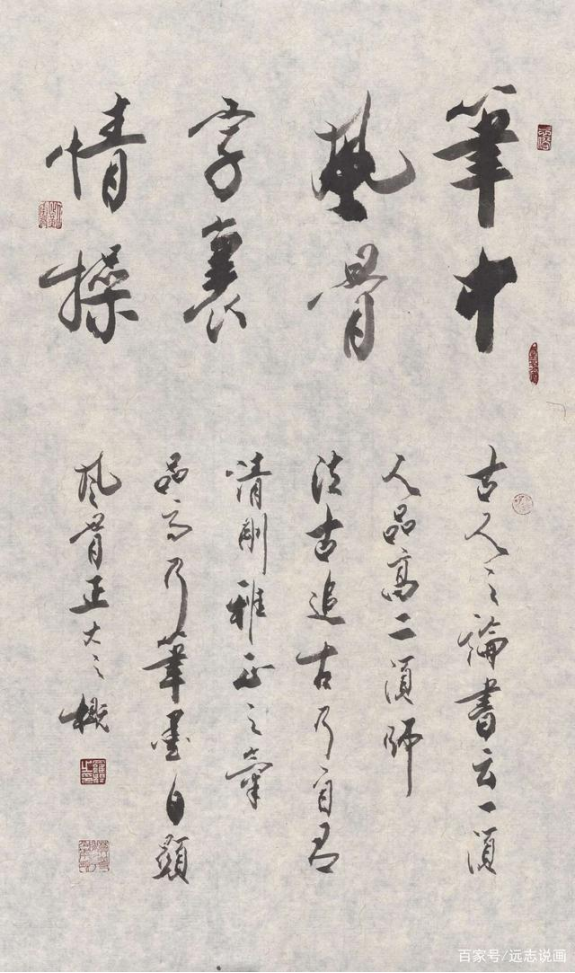 筆中
風骨
字裏
情操
古人之論書云一須
人品高二須師
法古追古乃自具
清剛雅正之氣
品高乃筆墨自顯
風骨正大之概
百家号/远志说画